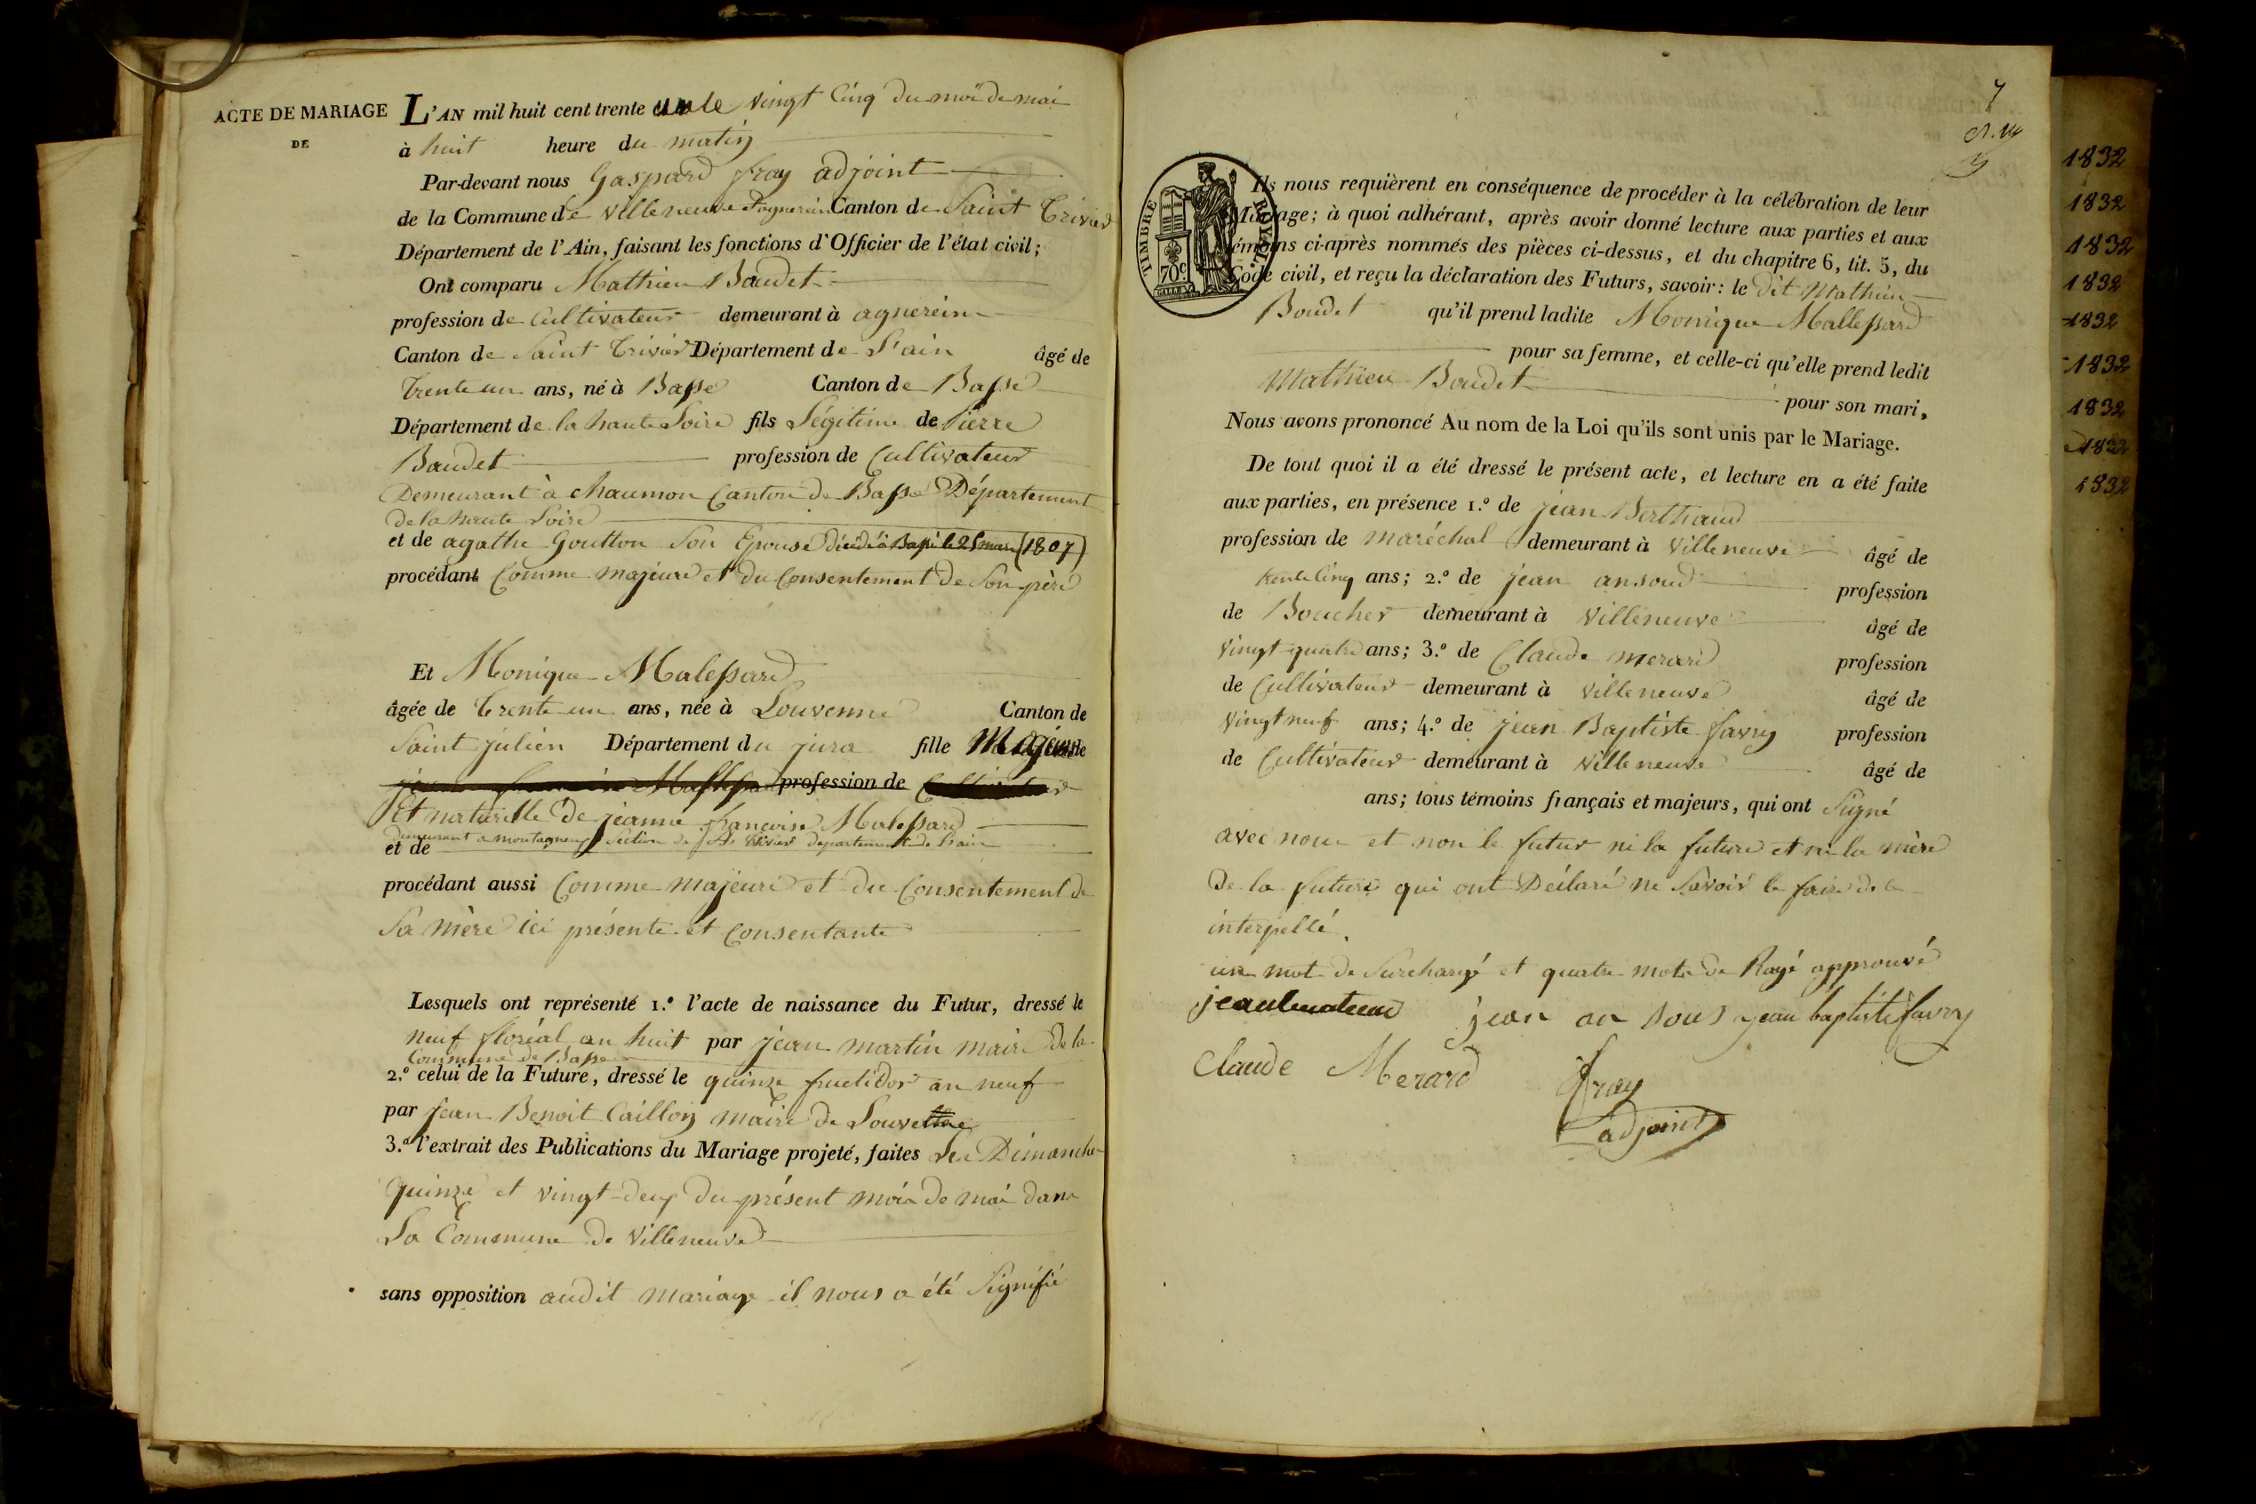 ACTE DE MARIAGE
DE
L'AN mil huit cent trente un le vingt cinq du mois de mai
à huit heure du matin
Par-devant nous Gaspard fray adjoint
de la Commune de villeneuve agnereins Canton de Saint Trivier
Département de l'Ain, faisant les fonctions d'Officier de l'état civil;
Ont comparu Mathieu Baudet
profession de Cultivateur demeurant à agnerein
Canton de Saint Trivier Département de L'ain âgé de
trente un ans, né à Basse Canton de Basse
Département de la haute Loire fils Légitime de Pierre
Baudet profession de Cultivateur
Demeurant à chaumon Canton de Basse Département
de la haute Loire
et de agathe Goutton Son Epouse décédé à Basse le 25 mars (1807)
procédant Comme majeure et du Consentement de Son père
Et Monique Malessard
âgée de trente un ans, née à Louvenne Canton de
Saint julien Département du jura fille Majeure
profession de
Et naturelle de jeanne françoise Malessard
demeurant a montagneux Section de St trivier département de l'ain
et de
procédant aussi Comme majeure et du Consentement de
Sa mère ici présente et Consentante
Lesquels ont représenté 1.º l'acte de naissance du Futur, dressé le
neuf floréal an huit par jean martin maire de la
Commune de Basse
2.º celui de la Future, dressé le quinze fructidor an neuf
par jean Benoit Caillon maire de Louvenne
3.º l'extrait des Publications du Mariage projeté, faites les Dimanche
quinze et vingt-deux du présent mois de mai dans
La Commune de Villeneuve
sans opposition audit mariage il nous a été Signifié
7
TIMBRE ROYAL
70c
Ils nous requièrent en conséquence de procéder à la célébration de leur
Mariage; à quoi adhérant, après avoir donné lecture aux parties et aux
témoins ci-après nommés des pièces ci-dessus, et du chapitre 6, tit. 5, du
Code civil, et reçu la déclaration des Futurs, savoir: le dit Mathieu
Boudet qu'il prend ladite Monique Mallessard
pour sa femme, et celle-ci qu'elle prend ledit
Mathieu Boudet
pour son mari,
Nous avons prononcé Au nom de la Loi qu'ils sont unis par le Mariage.
De tout quoi il a été dressé le présent acte, et lecture en a été faite
aux parties, en présence 1.º de jean Berthaud
profession de maréchal demeurant à Villeneuve âgé de
trente cinq ans; 2.º de jean ansoud profession
de Boucher demeurant à Villeneuve âgé de
vingt-quatre ans; 3.º de Claude merard profession
de Cultivateur demeurant à villeneuve âgé de
vingt neuf ans; 4.º de jean Baptiste favry profession
de Cultivateur demeurant à villeneuve âgé de
ans; tous témoins français et majeurs, qui ont Signé
avec nous et non le futur ni la future et ni la mère
de la future qui ont Déclaré ne Savoir le faire de ce
interpellé.
un mot de Surchargé et quatre mots de Rayé approuvé
jean an sous jean baptiste favry
Claude Merard fray
adjoint
1832
1832
1832
1832
1832
1832
1832
1832
1832